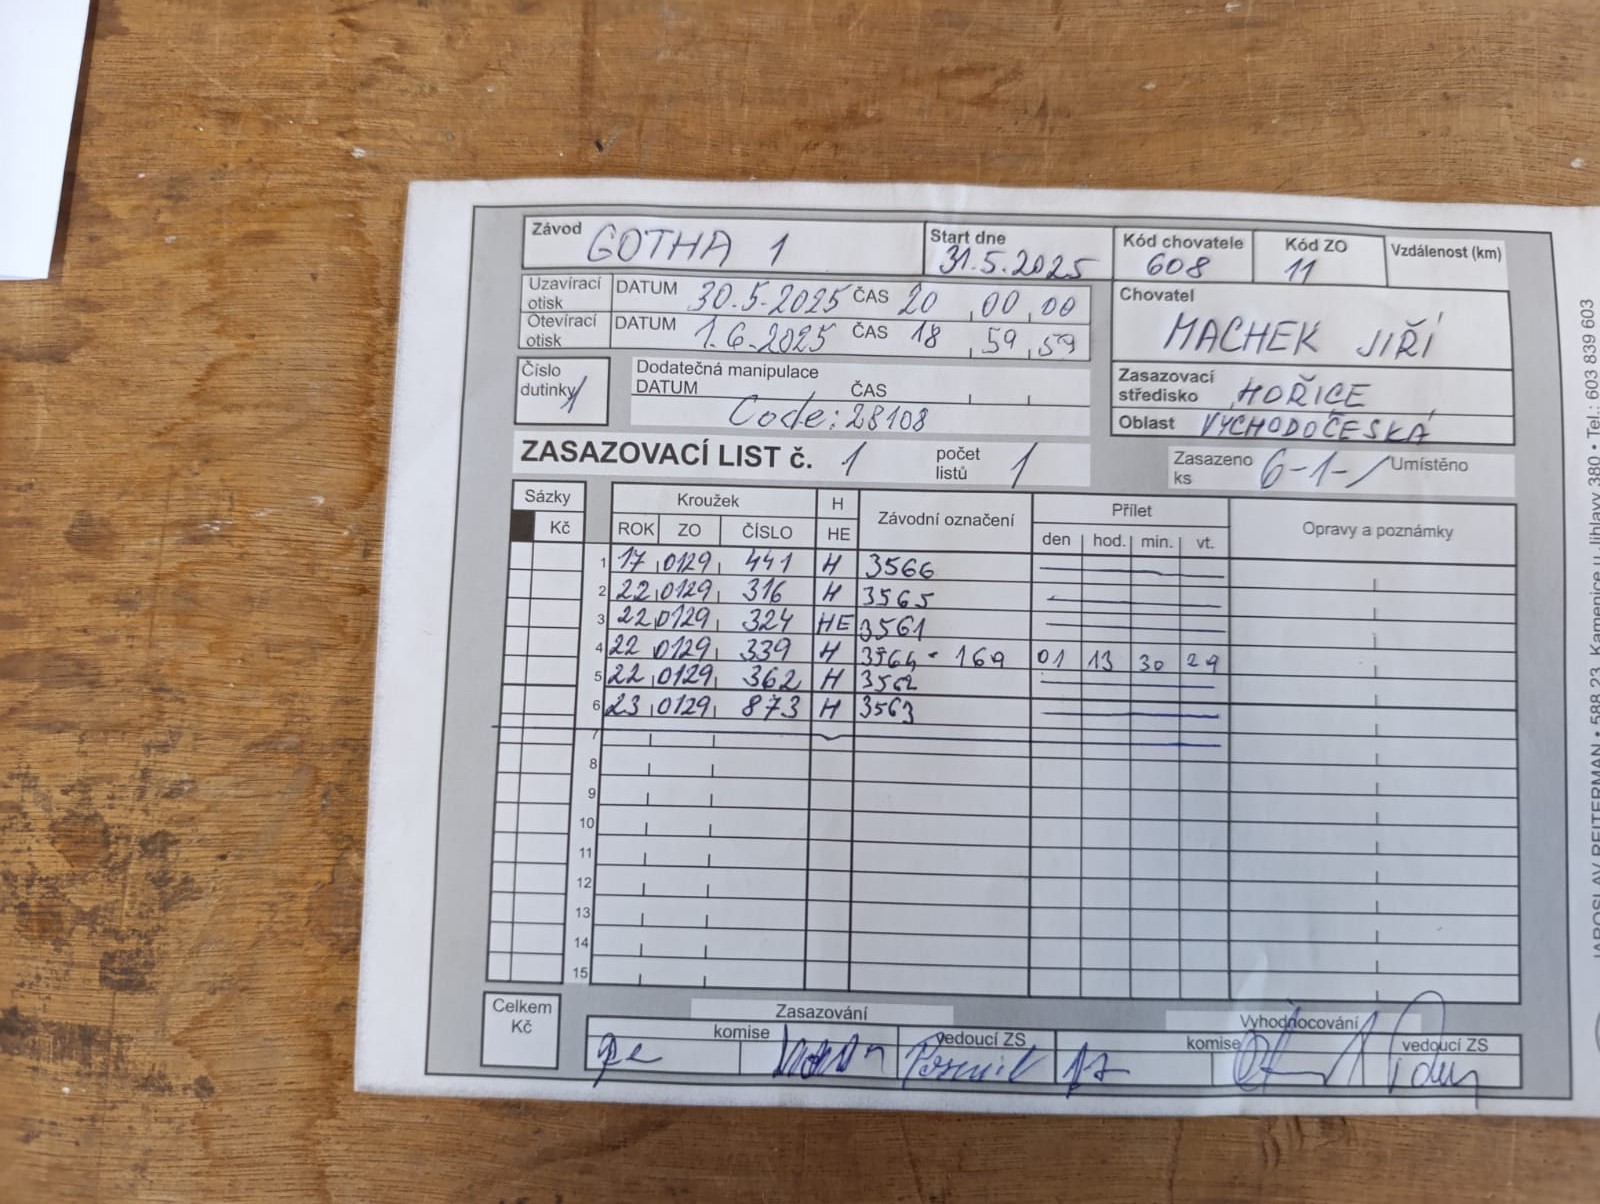 Závod GOTHA 1 Start dne 31.5.2025 Kód chovatele 608 Kód ZO 11 Vzdálenost (km)
Uzavírací otisk DATUM 30.5.2025 ČAS 20 00 00
Otevírací otisk DATUM 1.6.2025 ČAS 18 59 59
Chovatel MACHEK JIŘÍ
Číslo dutinky 1
Dodatečná manipulace
DATUM ČAS
Code: 28108
Zasazovací středisko HOŘICE
Oblast VÝCHODOČESKÁ
ZASAZOVACÍ LIST č. 1 počet listů 1
Zasazeno ks 6-1- Umístěno
Sázky Kroužek H Závodní označení Přílet Opravy a poznámky
Kč ROK ZO ČÍSLO HE den hod. min. vt.
1 17 0129 441 H 3566
2 22 0129 316 H 3565
3 22 0129 324 HE 3561
4 22 0129 339 H 3564 - 169 01 13 30 29
5 22 0129 362 H 3562
6 23 0129 873 H 3563
7
8
9
10
11
12
13
14
15
Celkem Kč
Zasazování Vyhodnocování
komise vedoucí ZS komise vedoucí ZS
JAROSLAV REITERMAN • 588 23 Kamenice u Jihlavy 380 • Tel.: 603 839 603